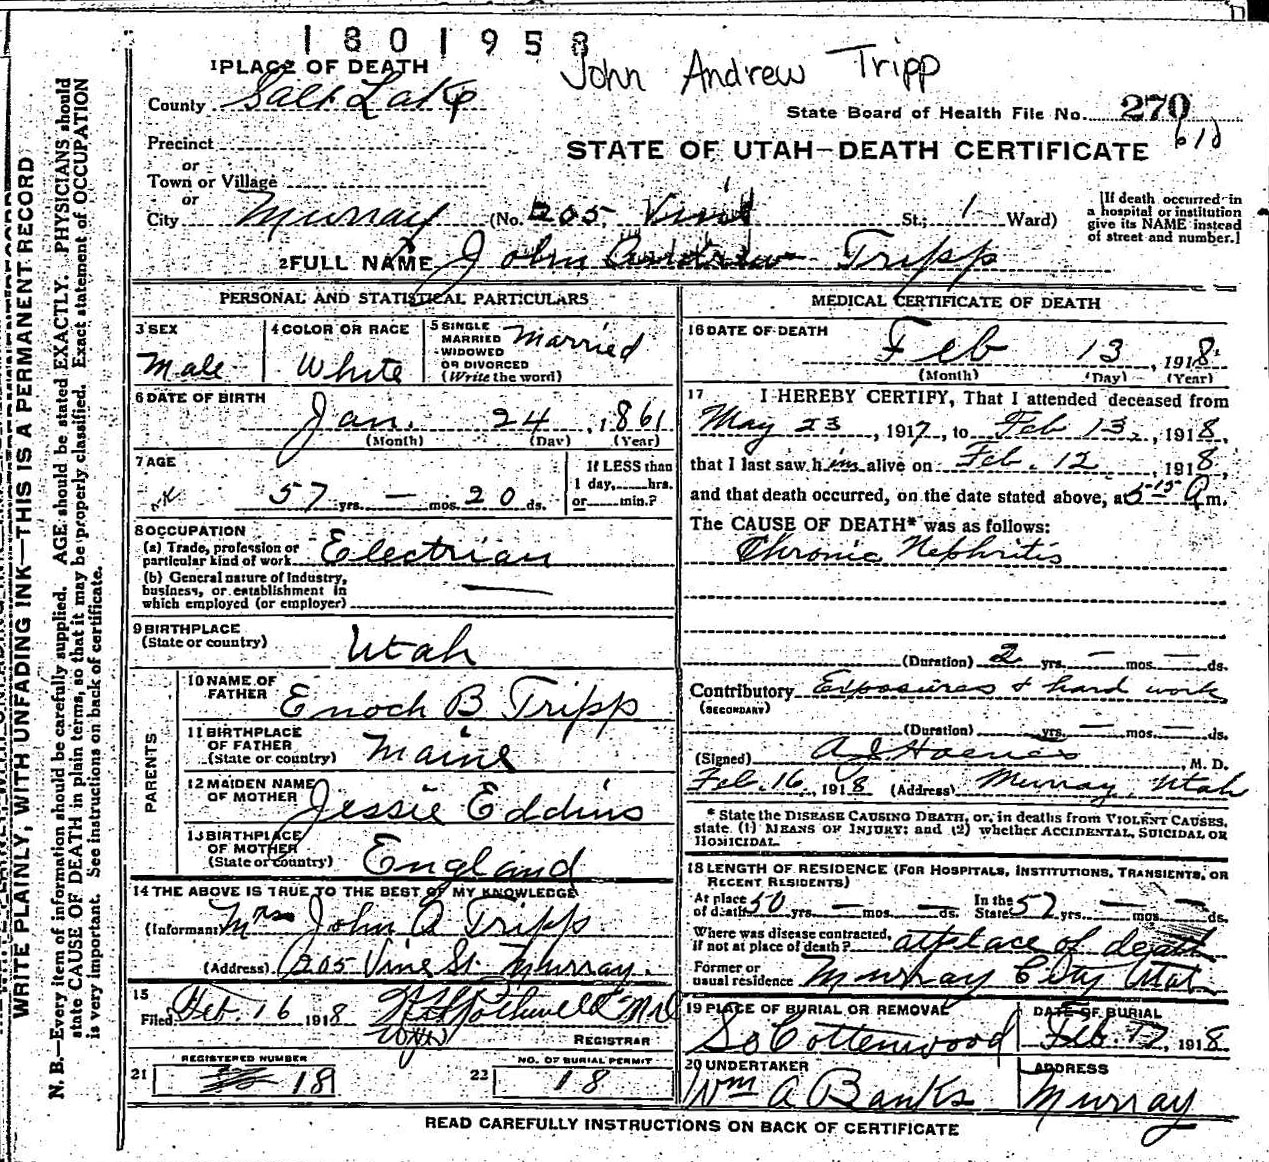 1801958
John Andrew Tripp
1 PLACE OF DEATH
County Salt Lake
State Board of Health File No. 270
Precinct
STATE OF UTAH—DEATH CERTIFICATE
or
Town or Village
or
City Murray (No. 205, Vine St.; 1 Ward)
[If death occurred in
a hospital or institution
give its NAME instead
of street and number.]
2 FULL NAME John Andrew Tripp
PERSONAL AND STATISTICAL PARTICULARS
3 SEX
Male
4 COLOR OR RACE
White
5 SINGLE
MARRIED
WIDOWED
OR DIVORCED
(Write the word)
Married
6 DATE OF BIRTH
Jan. 24, 1861
(Month) (Day) (Year)
7 AGE
57 yrs. — mos. 20 ds.
If LESS than
1 day, hrs.
or min.?
8 OCCUPATION
(a) Trade, profession or
particular kind of work Electrian
(b) General nature of industry,
business, or establishment in
which employed (or employer) —
9 BIRTHPLACE
(State or country) Utah
PARENTS
10 NAME OF
FATHER Enoch B Tripp
11 BIRTHPLACE
OF FATHER
(State or country) Maine
12 MAIDEN NAME
OF MOTHER Jessie Eddins
13 BIRTHPLACE
OF MOTHER
(State or country) England
14 THE ABOVE IS TRUE TO THE BEST OF MY KNOWLEDGE
(Informant) Mrs John A Tripp
(Address) 205 Vine St. Murray.
15
Filed Feb. 16 1918
REGISTRAR
REGISTERED NUMBER
21 18
NO. OF BURIAL PERMIT
22 18
MEDICAL CERTIFICATE OF DEATH
16 DATE OF DEATH
Feb 13, 1918.
(Month) (Day) (Year)
17 I HEREBY CERTIFY, That I attended deceased from
May 23, 1917, to Feb 13., 1918,
that I last saw him alive on Feb. 12, 1918,
and that death occurred, on the date stated above, at 5-15 A m.
The CAUSE OF DEATH* was as follows:
Chronic Nephritis
(Duration) 2 yrs. — mos. — ds.
Contributory Exposures & hard work
(SECONDARY)
(Duration) yrs. — mos. — ds.
(Signed) M. D.
Feb. 16, 1918 (Address) Murray, Utah
* State the DISEASE CAUSING DEATH, or, in deaths from VIOLENT CAUSES,
state (1) MEANS OF INJURY; and (2) whether ACCIDENTAL, SUICIDAL OR
HOMICIDAL.
18 LENGTH OF RESIDENCE (FOR HOSPITALS, INSTITUTIONS, TRANSIENTS, OR
RECENT RESIDENTS)
At place
of death 50 yrs. — mos. — ds.
In the
State 57 yrs. — mos. — ds.
Where was disease contracted,
if not at place of death? at place of death
Former or
usual residence Murray City Utah
19 PLACE OF BURIAL OR REMOVAL
So Cottenwood
DATE OF BURIAL
Feb. 17, 1918
20 UNDERTAKER
Wm A Banks
ADDRESS
Murray
READ CAREFULLY INSTRUCTIONS ON BACK OF CERTIFICATE
WRITE PLAINLY, WITH UNFADING INK—THIS IS A PERMANENT RECORD
N. B.—Every item of information should be carefully supplied. AGE should be stated EXACTLY. PHYSICIANS should
state CAUSE OF DEATH in plain terms, so that it may be properly classified. Exact statement of OCCUPATION
is very important. See instructions on back of certificate.